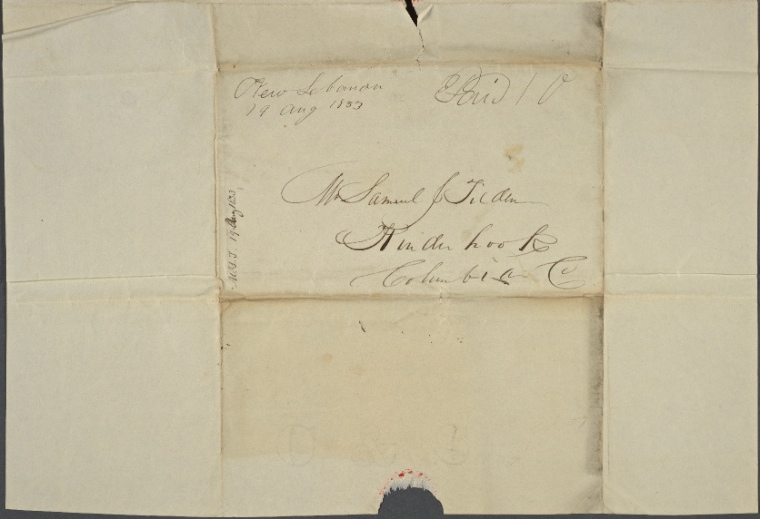 New Lebanon
19 Aug 1833
Paid 10
Mr Samuel J Tilden
Kinderhook
Columbia C
M.Y.T. 19 Aug 1833